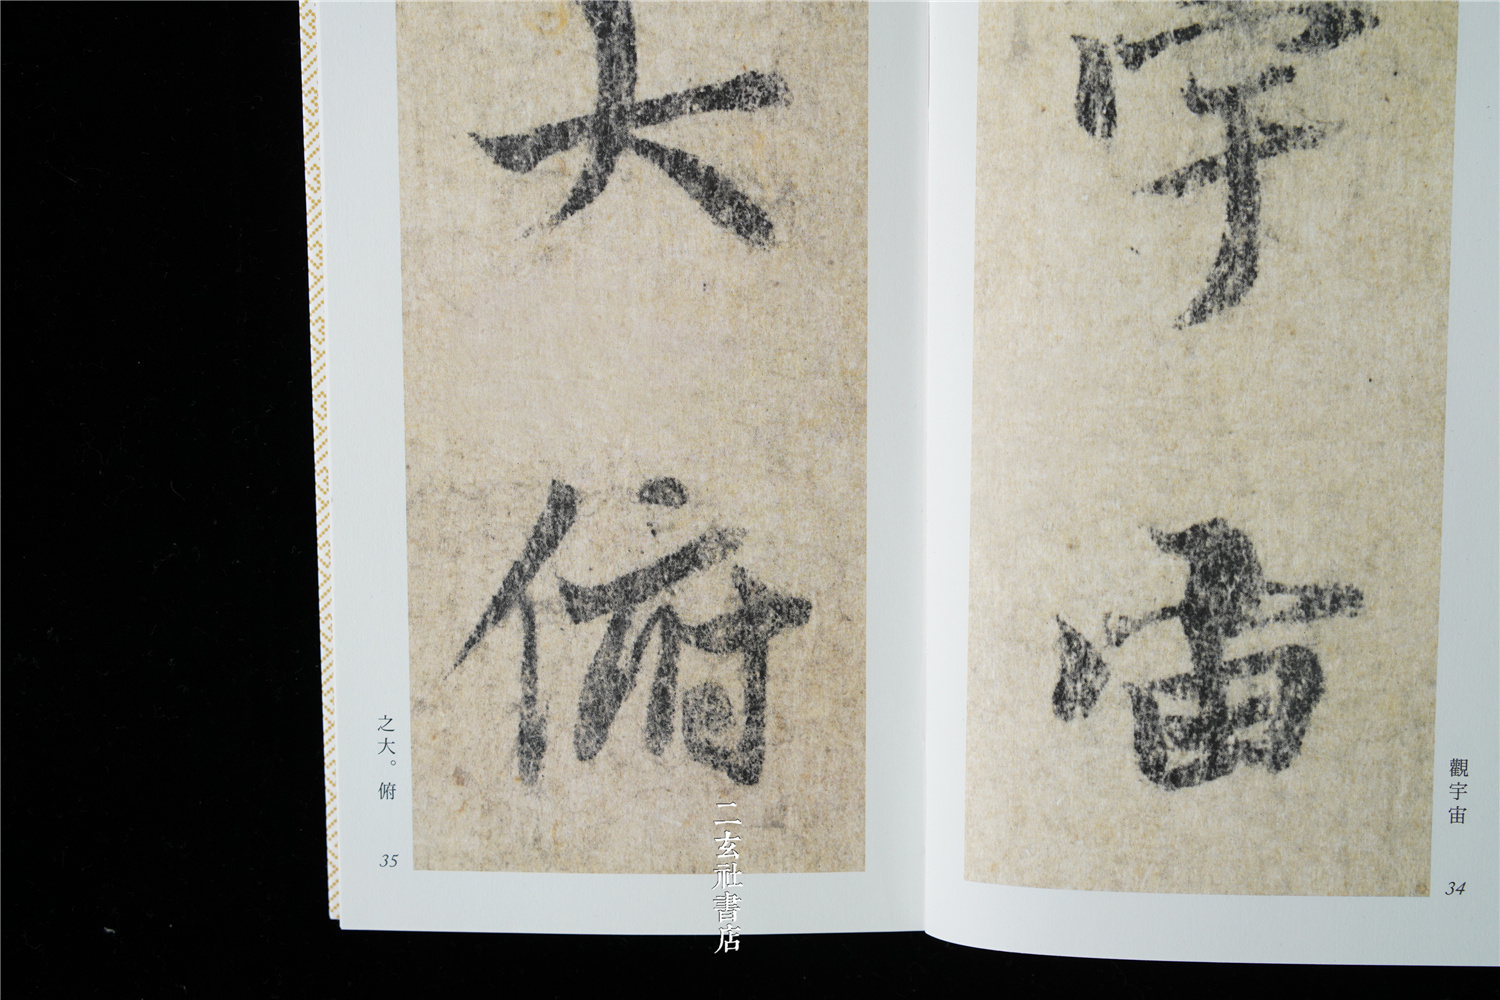 宇宙
觀宇宙
34
大俯
之大。俯
35
二玄社書店